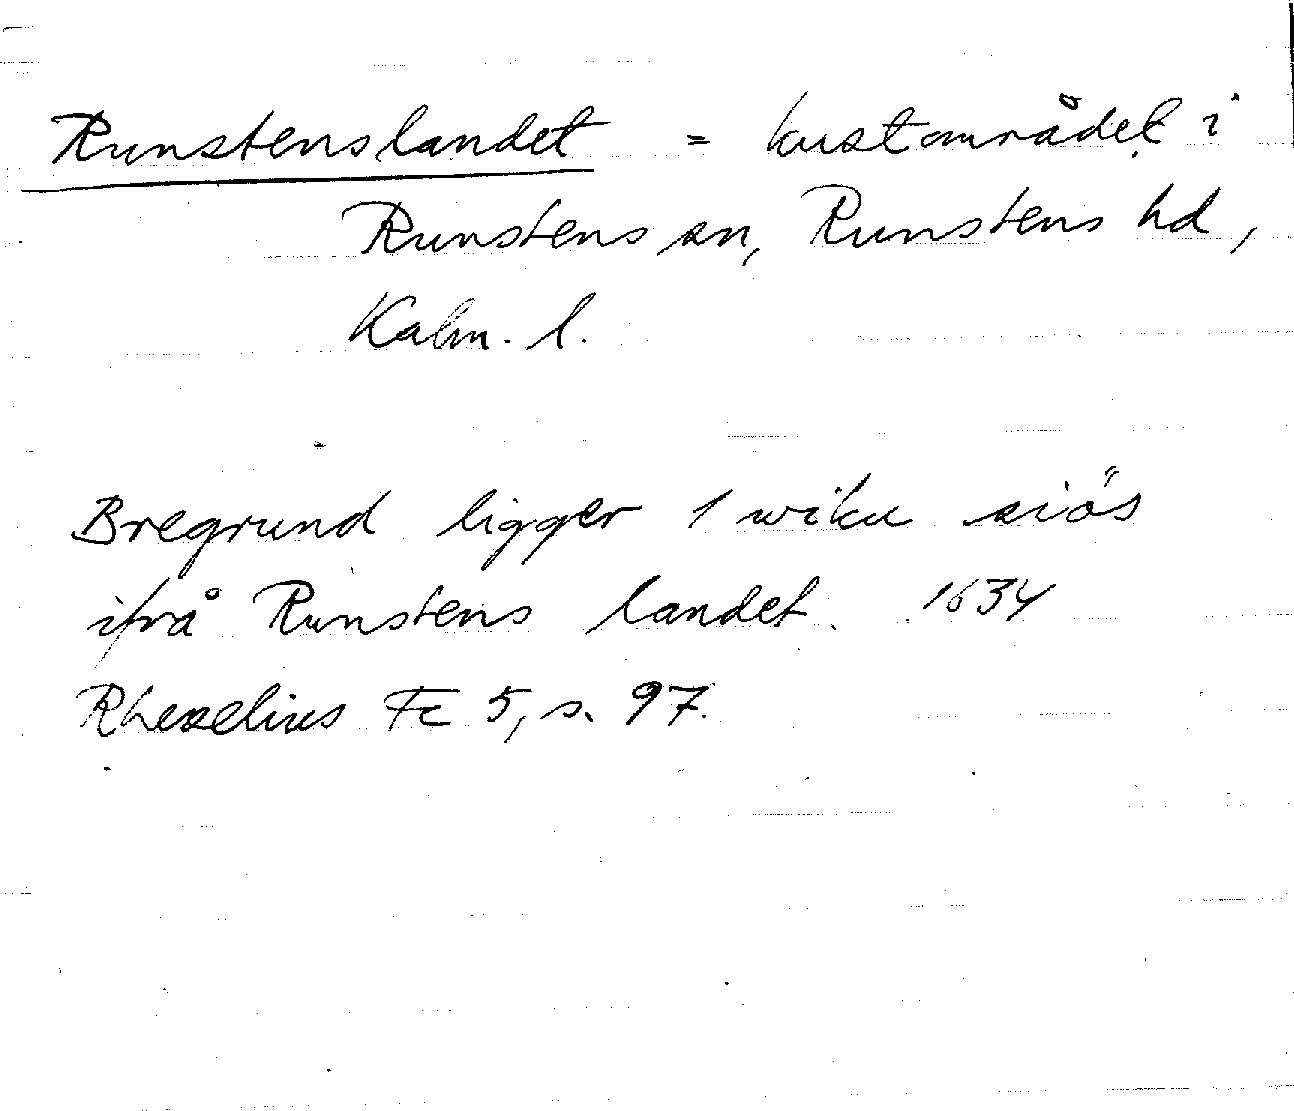 Runstenslandet = kustområdet i
Runstens sn, Runstens hd,
Kalm. l.
Bregrund ligger 1 wiku siös
ifrå Runstens landet. 1634
Rhezelius Fc 5, s. 97.